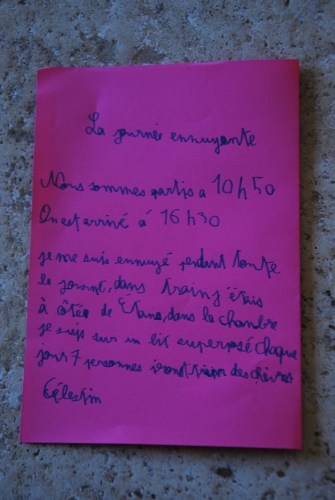 La journée ennuyante
Nous sommes partis a 10h50
On est arrivé á 16h30
je me suis ennuyé pendant toute
le journé, dans train j'étais
à côtée de Etano, dans la chambre
je suis sur un lit superposé chaque
jour 7 personnes iront traper des chèvres
Célestin